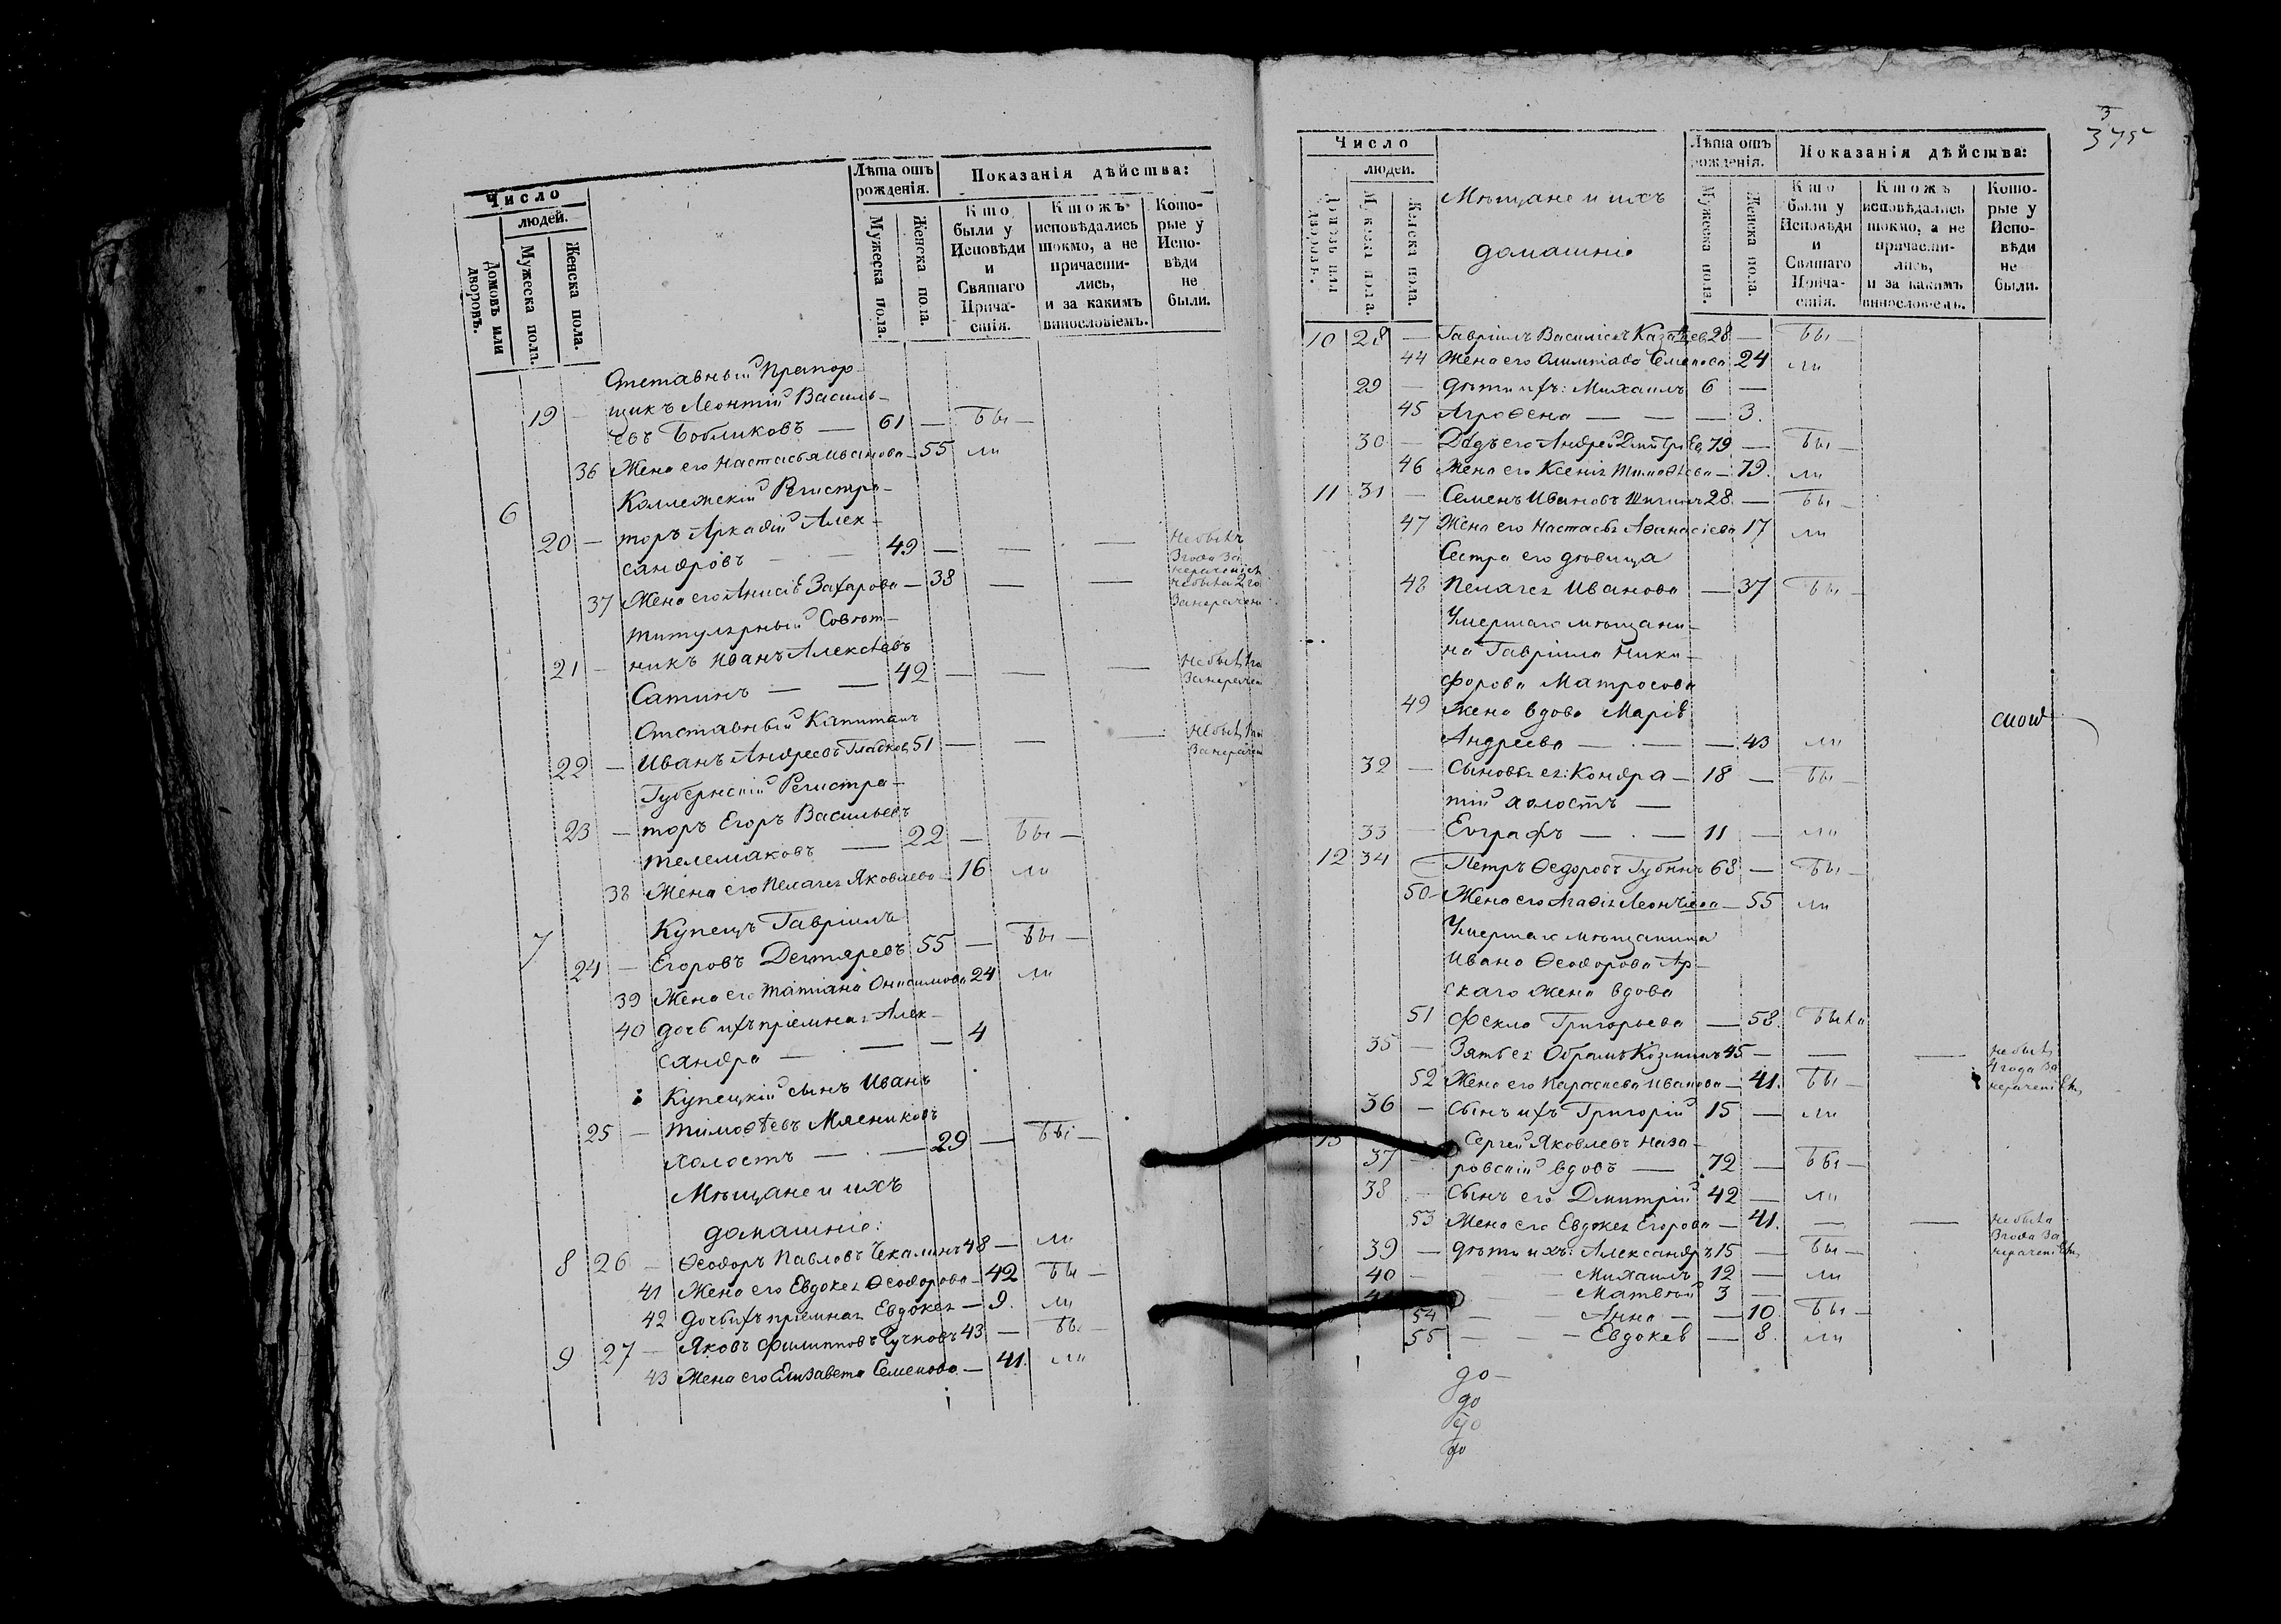 Число
людей.
Домовъ или дворовъ.
Мужеска пола.
Женска пола.
Лѣта отъ рожденія.
Мужеска пола.
Женска пола.
Показанія дѣйства:
Кто были у Исповѣди и Святаго Прича-стія.
Ктожъ исповѣдались токмо, а не причасти-лись, и за какимъ винословіемъ.
Кото-рые у Испо-вѣди не были.
Отставный Прапор-
19 — щикъ Леонтій Василь-
евъ Бобликовъ — 61 — бы —
36 Жена его Настасья Иванова — 55 ли
6 Коллежскій Регистра-
20 — торъ Аркадій Алек-
сандровъ — — 49 — — — не былъ
3 года за
37 Жена его Анисія Захарова — 38 — —
Титулярный Совѣт-
21 — никъ Иванъ Алексѣевъ
Сатинъ — — 42 — — —
Отставный Капитанъ
22 — Иванъ Андреевъ Гладковъ 51 — — —
Губернскій Регистра-
23 — торъ Егоръ Васильевъ
Телемаковъ — 22 — бы —
38 Жена его Пелагея Яковлева — 16 ли
7 Купецъ Гавріилъ
24 — Егоровъ Дегтяревъ 55 — бы —
39 Жена его Татіана Онисимова 24 ли
40 дочь ихъ пріемная Алек-
сандра — . — — 4
Купецкій сынъ Иванъ
25 — Тимоѳѣевъ Мясниковъ
холостъ — . — 29 — бы —
Мѣщане и ихъ
домашніе:
8 26 — Ѳеодоръ Павловъ Чекалинъ 48 — ли
41 Жена его Евдокея Ѳеодорова — 42 бы —
42 дочь ихъ пріемная Евдокея — 9. ли
9 27 — Яковъ Филипповъ Сучковъ 43 — бы —
43 Жена его Елизавета Семенова — 41. ли
3
375
Число
людей.
Домовъ или дворовъ.
Мужеска пола.
Женска пола.
Мѣщане и ихъ
домашніе
Лѣта отъ рожденія.
Мужеска пола.
Женска пола.
Показанія дѣйства:
Кто были у Исповѣди и Святаго Прича-стія.
Ктожъ исповѣдались токмо, а не причасти-лись, и за какимъ винословіемъ.
Кото-рые у Испо-вѣди не были.
10 28 — Гавріилъ Василіевъ 28 — бы —
44 Жена его Олимпіада Семенова 24 ли
29 — дѣти ихъ: Михаилъ 6 —
45 Агрофена — — — 3.
30 — Дѣдъ его Андрей Дмитріевъ 79 — бы —
46 Жена его Ксенія Тимоѳѣева — 79. ли
11 31 — Семенъ Ивановъ 28 — бы —
47 Жена его Настасья Аѳанасіева 17 ли
Сестра его дѣвица
48 Пелагея Иванова — 37 бы —
Умершаго мѣщани-
на Гавріила Ники-
форова Матросова
49 жена вдова Марія
Андреева — . — — 43 ли
32 — Сыновья ея: Кондра — 18 — бы —
тій холостъ —
33 — Евграфъ — . — 11 — ли
12 34 — Петръ Ѳедоровъ Губинъ 68 — бы —
50 — Жена его Агафія Леонтіева — 55 ли
Умершаго мѣщанина
Ивана Ѳеодорова Ар-
скаго жена вдова
51 Фекла Григорьева — 58. была
35 — Зять ея Обрамъ Козминъ 45 — — — не былъ
4 года за
нераченіемъ
52 Жена его Параскева Иванова — 41. бы —
36 — Сынъ ихъ Григорій 15 — ли
13 Сергей Яковлевъ Наза-
37 — ровскій вдовъ — 72 — бы —
38 — Сынъ его Дмитрій 42 — ли
53 Жена его Евдокея Егорова — 41. — — не была
3 года за
нераченіемъ
39 — дѣти ихъ: Александръ 15 — бы —
40 — — Михаилъ 12 — ли
— Матвѣй 3 —
54 — — Анна — — 10. бы —
55 — — — Евдокея — 8. ли
до —
до
до
до